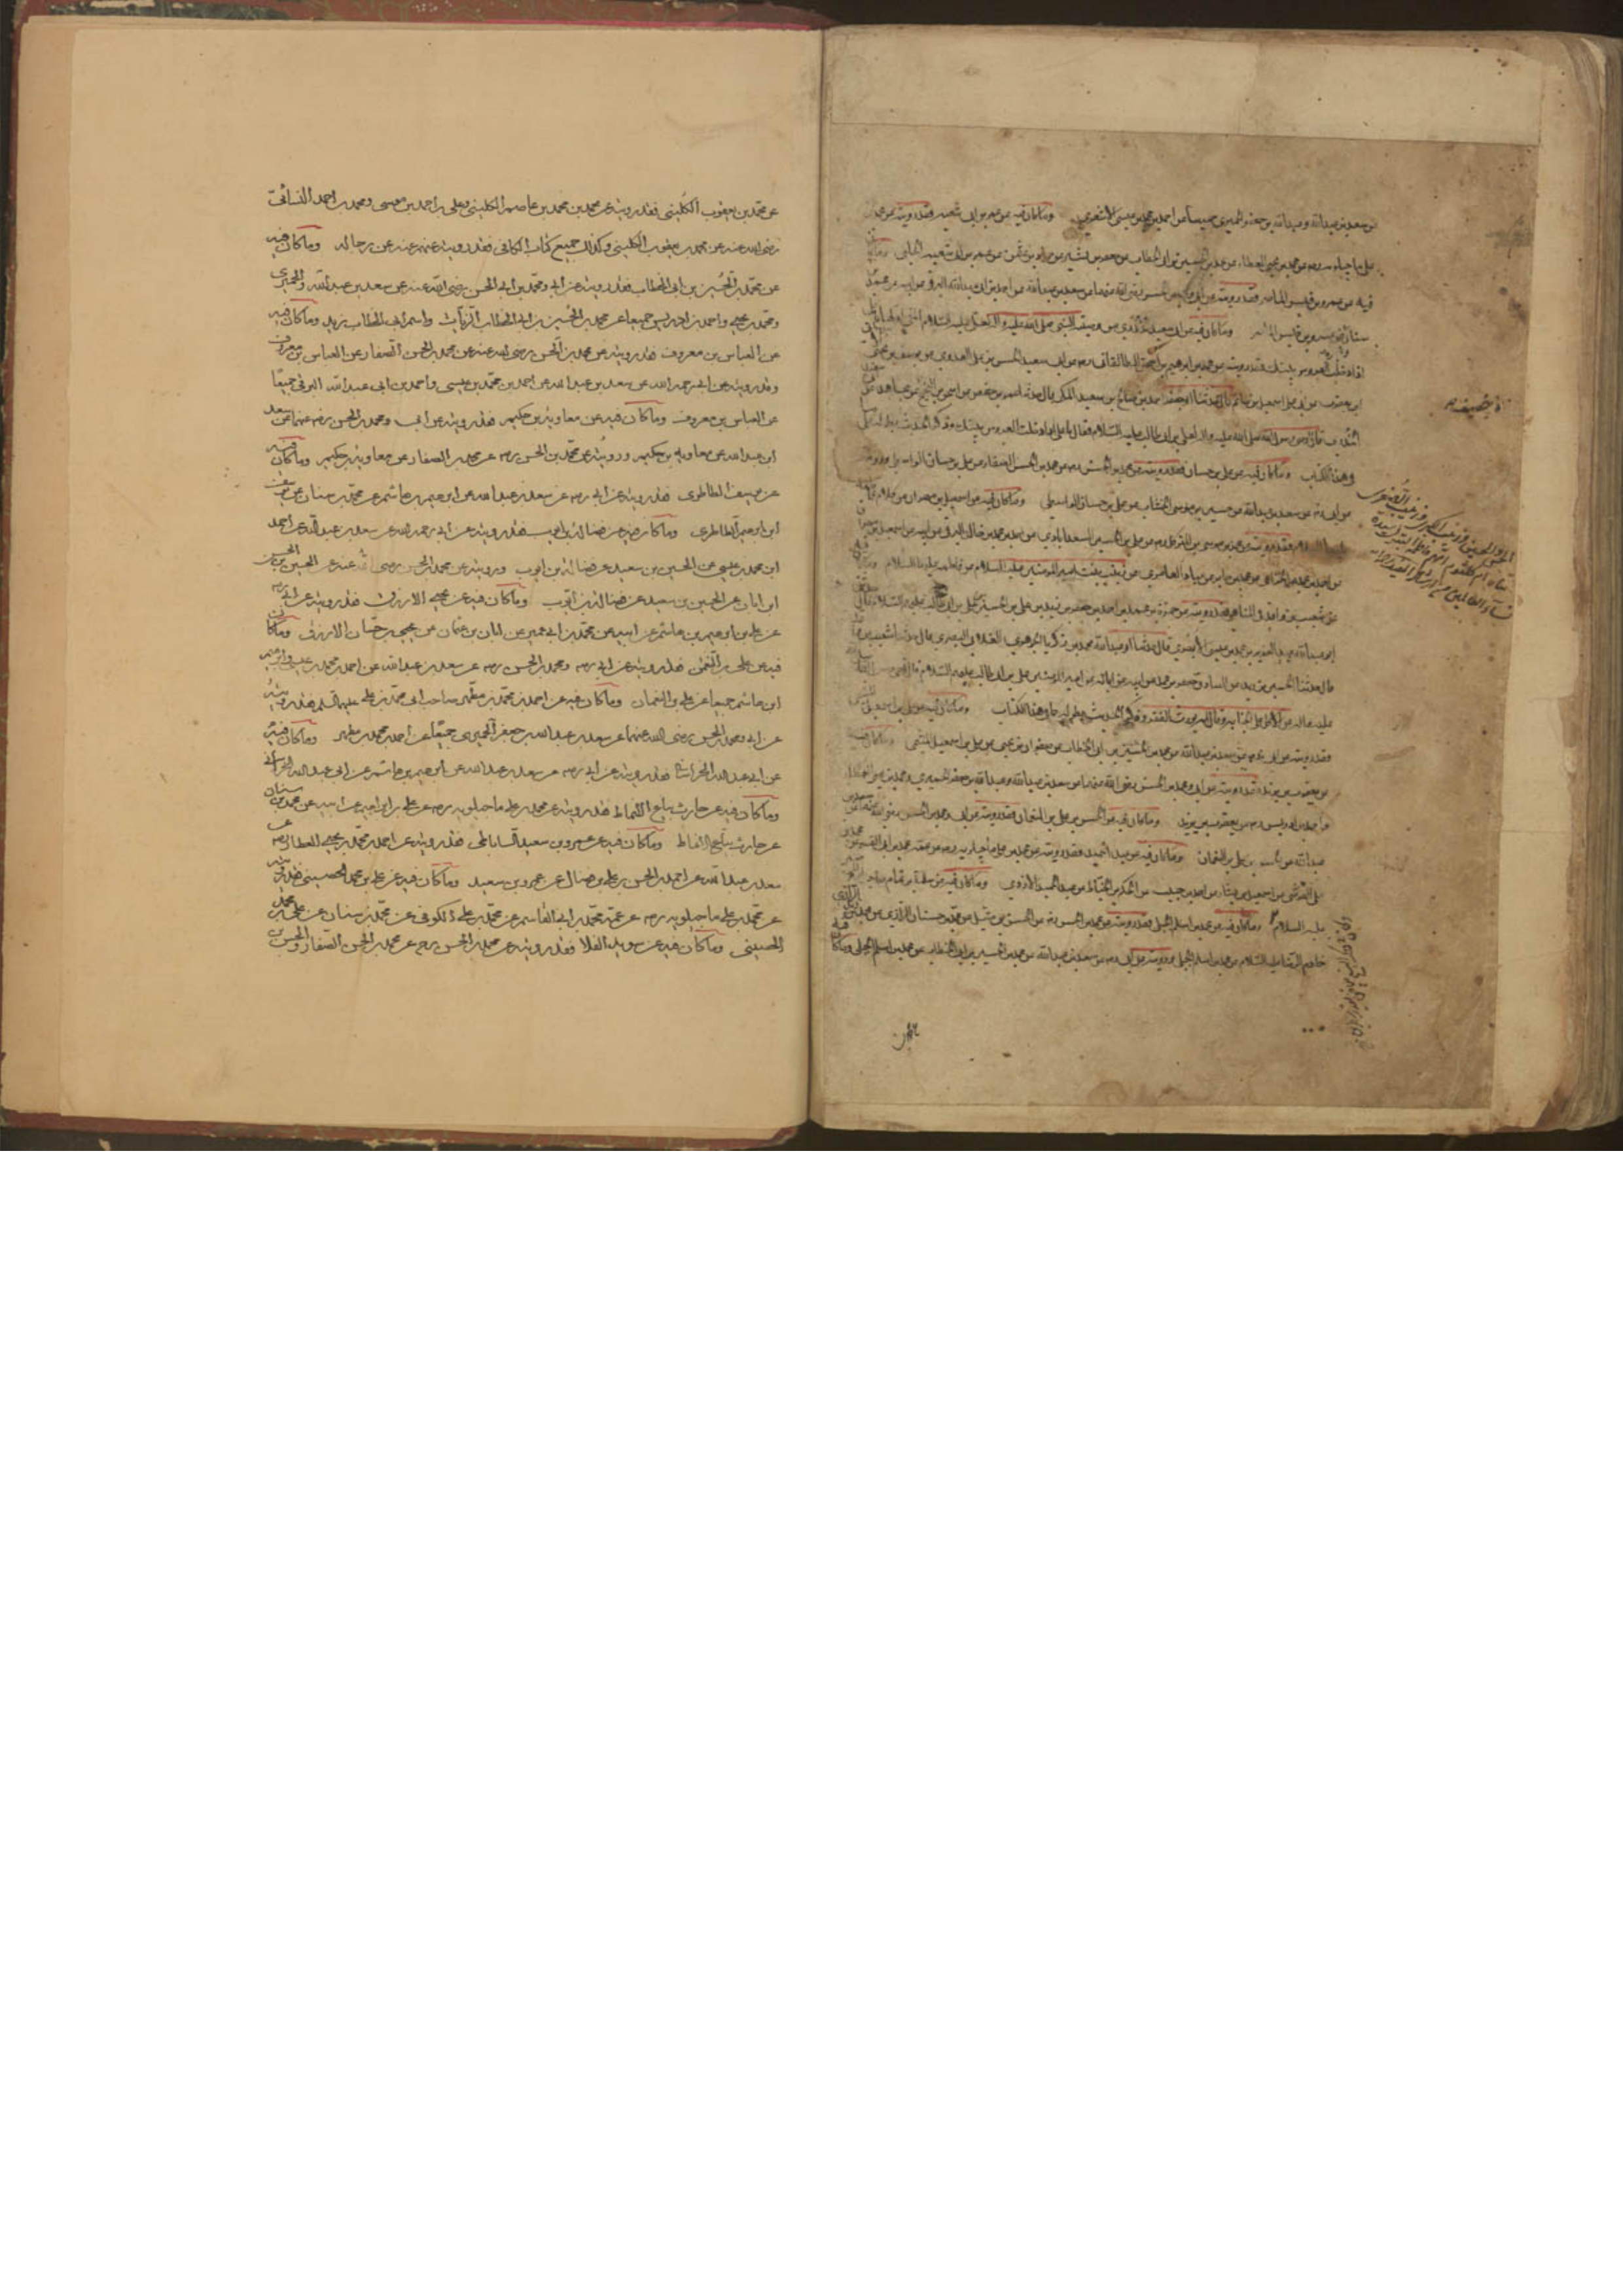 بن سعد بن عبدالله وعبدالله بن جعفر الحميري جميعا عن احمد بن محمد بن عيسى الاشعري وما كان فيه عن عمر بن ابي شعبه فقد رويته عن
علي ماجيلويه ره عن محمد بن يحيى العطار عن محمد بن الحسين بن ابي الخطاب عن جعفر بن بشير عن حماد بن عثمن عن عمر بن ابي شعبه الحلبي وما كان
فيه عن عمرو بن قيس الماصر فقد رويته عن ابي ومحمد بن الحسن رضي الله عنهما عن سعد بن عبدالله عن احمد بن ابي عبدالله البرقي عن ابيه عن محمد
سنان عن عمرو بن قيس الماصر وما كان فيه عن ابي سعيد الخدري من وصية النبي صلى الله عليه واله لعلي عليه السلام التي اولها يا علي
اذا دخلت العروس بيتك فقد رويته عن محمد بن ابراهيم بن اسحق الطالقاني ره عن ابي سعيد الحسن بن علي العدوي عن يوسف بن يحيى
ابو يعقوب عن ابي علي اسمعيل بن حاتم قال حدثنا ابو جعفر احمد بن صالح بن سعيد المكي قال حدثنا عمرو بن حفص عن اسحق بن نجيح عن مجاهد عن
الخدري قال اوصى رسول الله صلى الله عليه واله الى علي بن ابي طالب عليه السلام فقال يا علي اذا دخلت العروس بيتك وذكر الحديث بطوله على
في هذا الكتاب وما كان فيه عن علي بن حسان فقد رويته عن محمد بن الحسن ره عن محمد بن الحسن الصفار عن علي بن حسان الواسطي ورويته
عن ابي ره عن سعد بن عبدالله عن الحسن بن موسى الخشاب عن علي بن حسان الواسطي وما كان فيه عن اسمعيل بن مهران من كلام فاطمه
عليها السلام فقد رويته عن محمد بن موسى بن المتوكل ره عن علي بن الحسين السعدابادي عن احمد بن محمد بن خالد البرقي عن ابيه عن اسمعيل بن مهران
عن احمد بن محمد الخزاعي عن محمد بن جابر عن عباد العامري عن زينب بنت امير المؤمنين عليه السلام عن فاطمه عليها السلام وما كان فيه
عن شعيب بن واقد في المناهي فقد رويته عن حمزة بن محمد بن احمد بن جعفر بن محمد بن زيد بن علي بن الحسين بن علي بن ابي طالب عليهم السلام قال حدثني
ابو عبدالله عبد العزيز بن محمد بن عيسى الابهري قال حدثنا ابو عبدالله محمد بن زكريا الجوهري الغلابي البصري قال حدثنا شعيب بن واقد
قال حدثنا الحسين بن زيد عن الصادق جعفر بن محمد عن ابيه عن ابائه عن امير المؤمنين علي بن ابي طالب عليهم السلام قال نهى رسول الله
عليه واله عن الاكل على الجنابه وقال انه يورث الفقر وذكر الحديث بطوله على ما في هذا الكتاب وما كان فيه عن علي بن اسمعيل
فقد رويته عن ابي ره عن سعد بن عبدالله عن محمد بن الحسين بن ابي الخطاب عن صفوان بن يحيى عن علي بن اسمعيل الميثمي وما كان فيه
عن يعقوب بن يزيد فقد رويته عن ابي ومحمد بن الحسن رضي الله عنهما عن سعد بن عبدالله وعبدالله بن جعفر الحميري ومحمد بن يحيى العطار
واحمد بن ادريس ره عن يعقوب بن يزيد وما كان فيه عن الحسن بن علي بن النعمان فقد رويته عن ابي ومحمد بن الحسن رضي الله عنهما عن سعد بن
عبدالله عن الحسن بن علي بن النعمان وما كان فيه عن عبد الحميد فقد رويته عن محمد بن علي ماجيلويه ره عن عمه محمد بن ابي القسم عن محمد بن
علي القرشي عن اسمعيل بن بشار عن احمد بن حبيب عن الحكم الخياط عن عبد الحميد الازدي وما كان فيه
عليه السلام وما كان فيه عن محمد بن اسلم الجبلي فقد رويته عن محمد بن الحسن ره عن الحسن بن متيل عن محمد بن حسان الرازي عن محمد بن زيد الرزامي
خادم الرضا عليه السلام عن محمد بن اسلم الجبلي ورويته عن ابي ره عن سعد بن عبدالله عن محمد بن الحسين بن ابي الخطاب عن محمد بن اسلم الجبلي وما كان فيه
عن
عن محمد بن يعقوب الكليني فقد رويته عن محمد بن محمد بن عاصم الكليني وعلي بن احمد بن موسى ومحمد بن احمد السنائي
رضي الله عنه عن محمد بن يعقوب الكليني وكذلك جميع كتاب الكافي فقد رويته عنهم عنه عن رجاله وما كان فيه
عن محمد بن الحسين بن ابي الخطاب فقد رويته عن ابي ومحمد بن الحسن رضي الله عنه عن سعد بن عبدالله والحميري
ومحمد بن يحيى واحمد بن ادريس جميعا عن محمد بن الحسين بن ابي الخطاب الزيات واسم ابي الخطاب زيد وما كان فيه
عن العباس بن معروف فقد رويته عن محمد بن الحسن رضي الله عنه عن محمد بن الحسن الصفار عن العباس بن معروف
وقد رويته عن ابي رحمه الله عن سعد بن عبدالله عن احمد بن محمد بن عيسى واحمد بن ابي عبدالله البرقي جميعا
عن العباس بن معروف وما كان فيه عن معاوية بن حكيم فقد رويته عن ابي ومحمد بن الحسن ره عنهما عن سعد
ابن عبدالله عن معاويه بن حكيم ورويته عن محمد بن الحسن ره عن محمد بن الصفار عن معاوية بن حكيم وما كان فيه
عن يوسف الطاطري فقد رويته عن ابي ره عن سعد بن عبدالله عن ابرهيم بن هاشم عن محمد بن سنان عن يوسف
ابن ابرهيم الطاطري وما كان فيه عن فضالة بن ايوب فقد رويته عن ابي رحمه الله عن سعد بن عبدالله عن احمد
ابن محمد بن عيسى عن الحسين بن سعيد عن فضالة بن ايوب ورويته عن محمد بن الحسن رضي الله عنه عن الحسين بن الحسن
ابن ابان عن الحسين بن سعيد عن فضالة بن ايوب وما كان فيه عن يحيى الازرق فقد رويته عن ابي ره
عن علي بن ابرهيم بن هاشم عن ابيه عن محمد بن ابي عمير عن ابان بن عثمان عن يحيى بن حسان الازرق وما كان
فيه عن علي بن النعمن فقد رويته عن ابي ره ومحمد بن الحسن ره عن سعد بن عبدالله عن احمد بن محمد بن عيسى وابرهيم
ابن هاشم جميعا عن علي بن النعمان وما كان فيه عن احمد بن محمد بن مطهر صاحب ابي محمد بن علي عليه السلم فقد رويته
عن ابي ومحمد بن الحسن رضي الله عنهما عن سعد بن عبدالله بن جعفر الحميري جميعا عن احمد بن محمد بن مطهر وما كان فيه
عن ابي عبدالله الخراساني فقد رويته عن ابي ره عن سعد بن عبدالله عن ابرهيم بن هاشم عن ابي عبدالله الخراساني
وما كان فيه عن حارث بياع الانماط فقد رويته عن محمد بن علي ماجيلويه ره عن علي بن ابراهيم عن ابيه عن محمد بن سنان
عن حارث بياع الانماط وما كان فيه عن عمرو بن سعيد الساباطي فقد رويته عن احمد بن محمد بن يحيى العطار ره عن
سعد بن عبدالله عن احمد بن الحسن بن علي بن فضال عن عمرو بن سعيد وما كان فيه عن علي بن محمد الحصيني فقد رويته
عن محمد بن علي ماجيلويه ره عن عمه محمد بن ابي القاسم عن محمد بن علي الكوفي عن محمد بن سنان عن علي بن محمد
الحصيني وما كان فيه عن سويد القلا فقد رويته عن محمد بن الحسن ره عن محمد بن الحسن الصفار والحسن بن